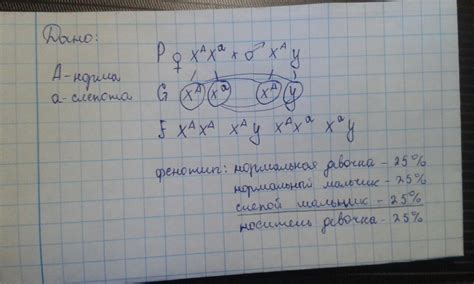 Дано:
P ♀ XᴬXᵃ × ♂ Xᴬy
A - норма
a - слепота
G Xᴬ Xᵃ Xᴬ y
F XᴬXᴬ Xᴬy XᴬXᵃ Xᵃy
фенотип: нормальная девочка - 25%
нормальный мальчик - 25%
слепой мальчик - 25%
носитель девочка - 25%